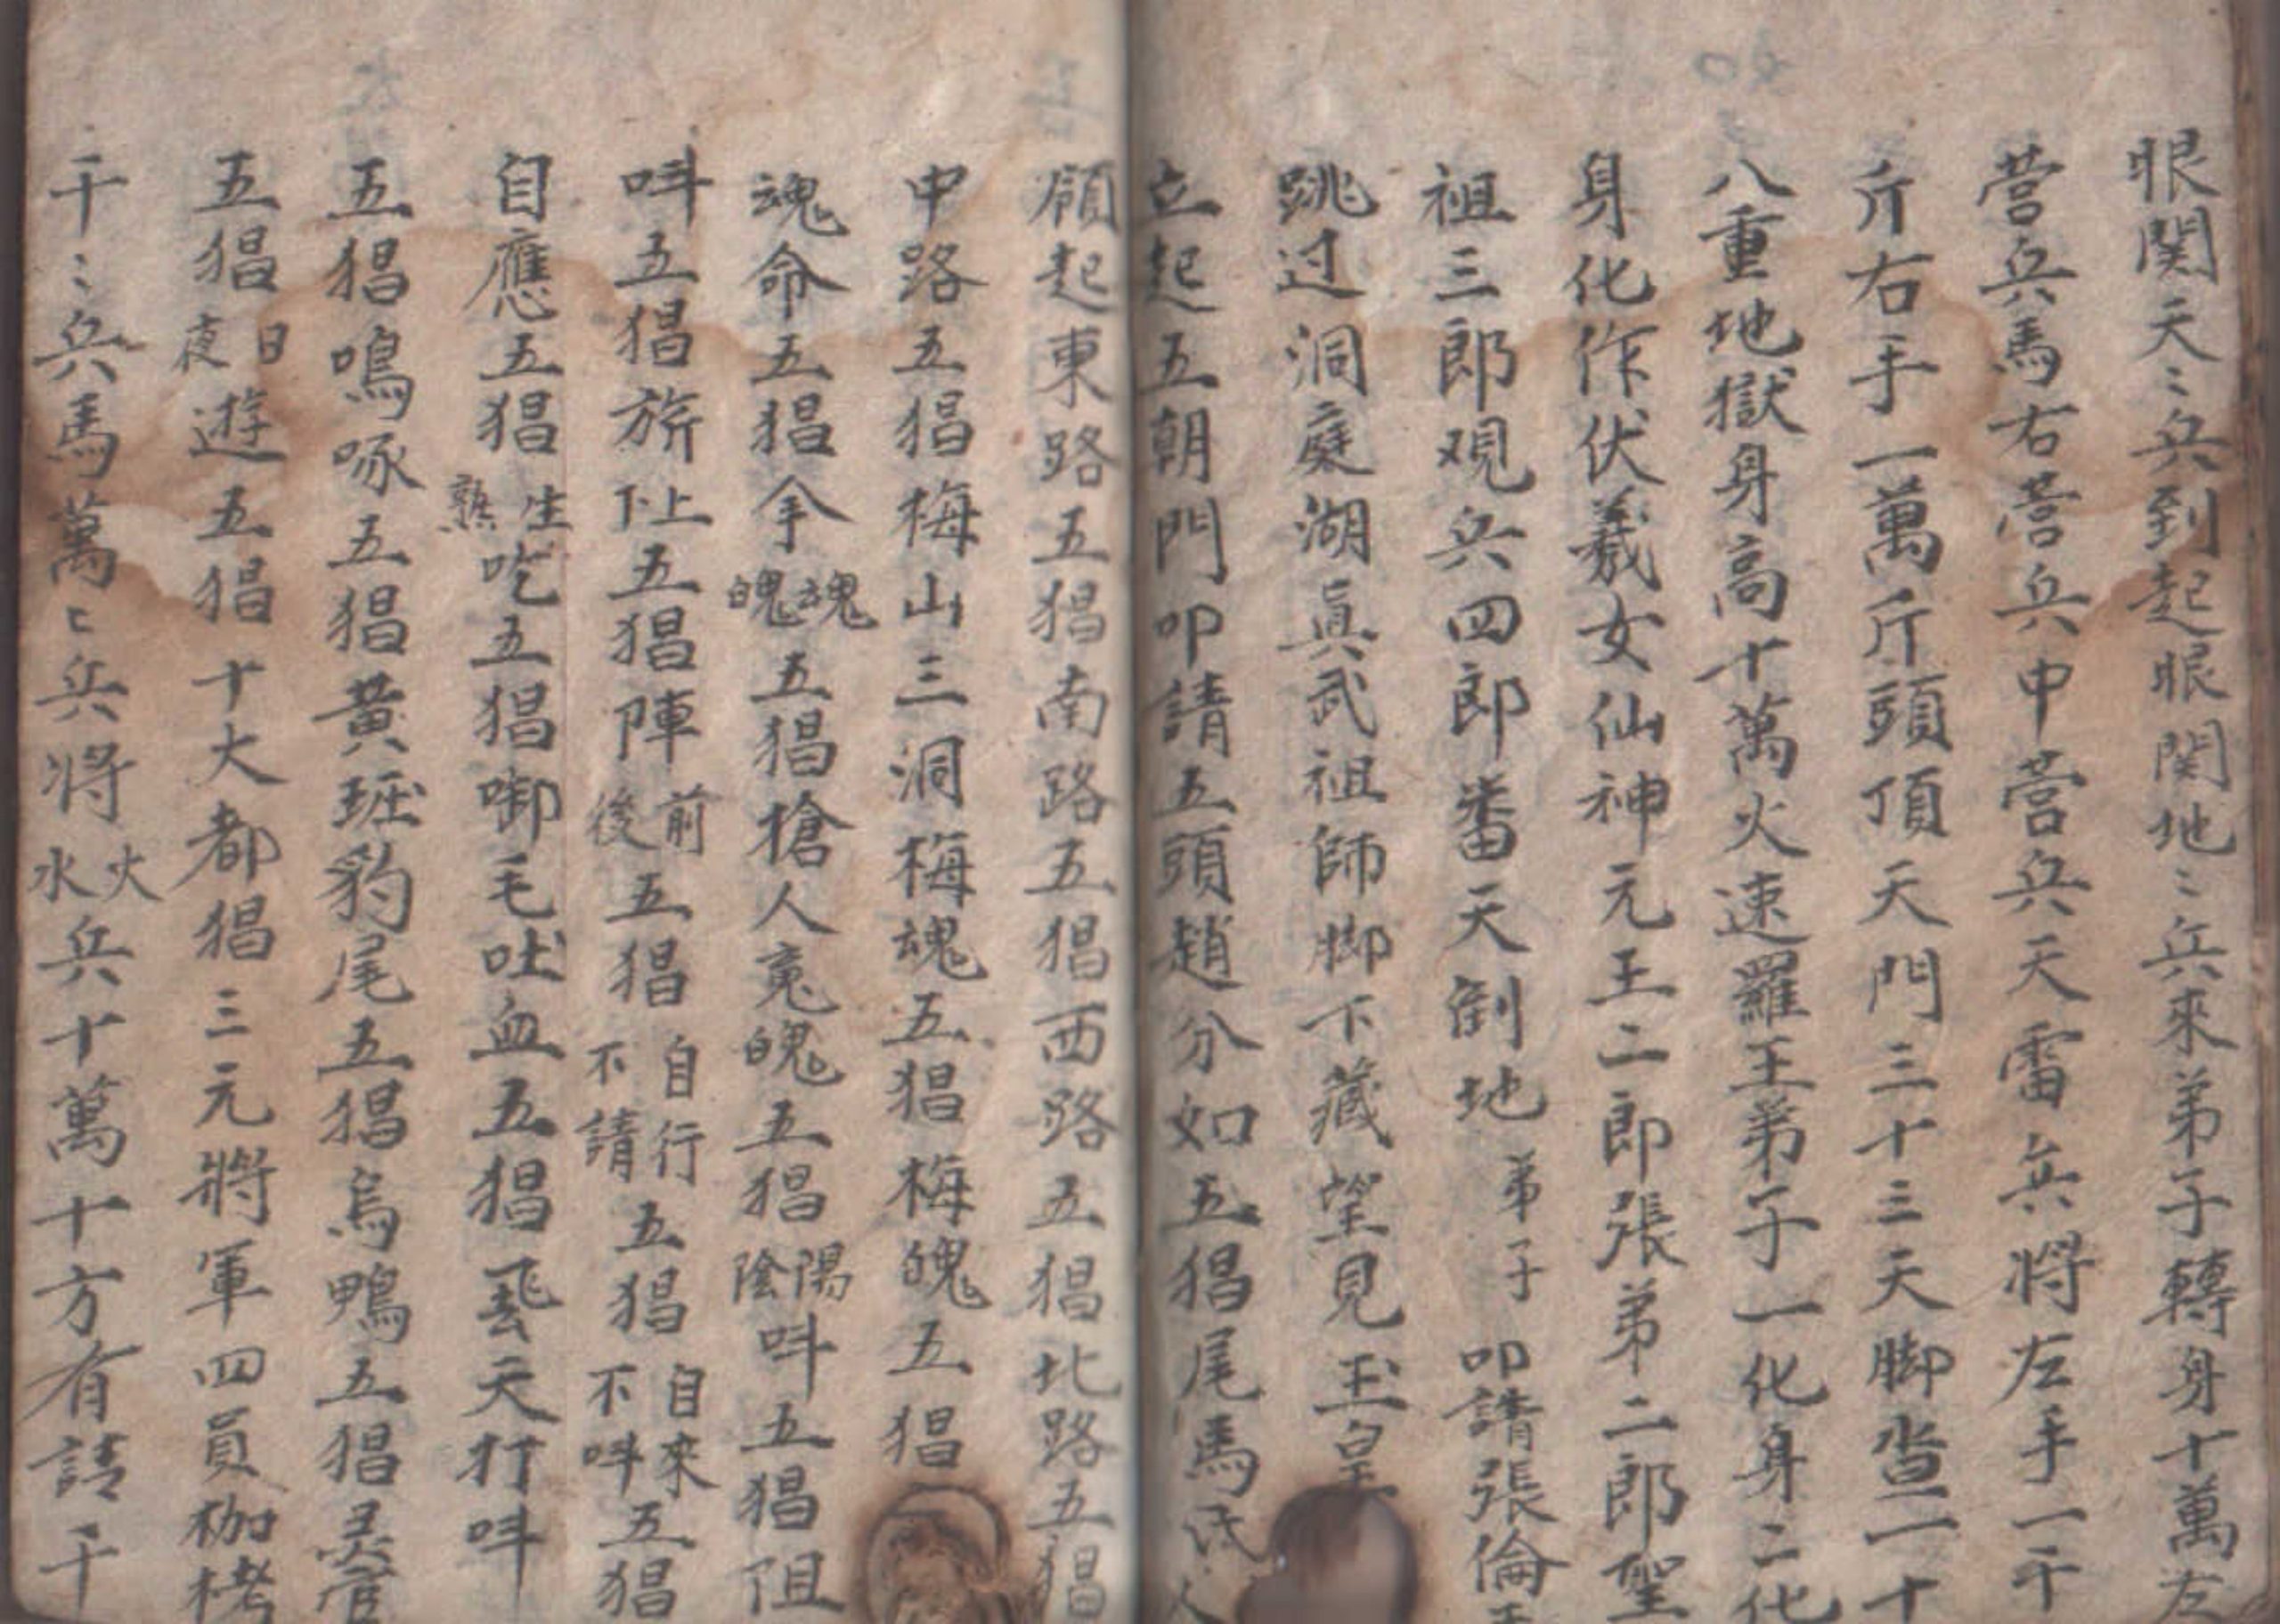 眼関天〻兵到起眼関地〻兵來弟子轉身十萬左
营兵馬右营兵中营兵天雷兵将左手一千
斤右手一萬斤頭頂天門三十三天脚踏一十
八重地獄身高十萬火速羅王弟子一化身二化
身化作伏羲女仙神元王二郎張弟二郎聖
祖三郎观兵四郎番天倒地弟子叩請張倫
跳过洞庭湖真武祖師脚下藏望見玉皇
立起五朝門叩請五頭趙分如五猖尾馬氏人
領起東路五猖南路五猖西路五猖北路五猖
中路五猖梅山三洞梅魂五猖梅魄五猖
魂命五猖拿魂魄五猖搶人䰟魄五猖陽陰呌五猖阻
呌五猖旂上下五猖陣前後五猖自行不請五猖自來不呌五猖
自應五猖生熟吃五猖啣毛吐血五猖飛天打呌
五猖鳴啄五猖黄班豹尾五猖烏鴨五猖灵官
五猖日夜遊五猖十大都猖三元將軍四員枷栲
千〻兵馬萬〻兵将火水兵十萬十方有請千